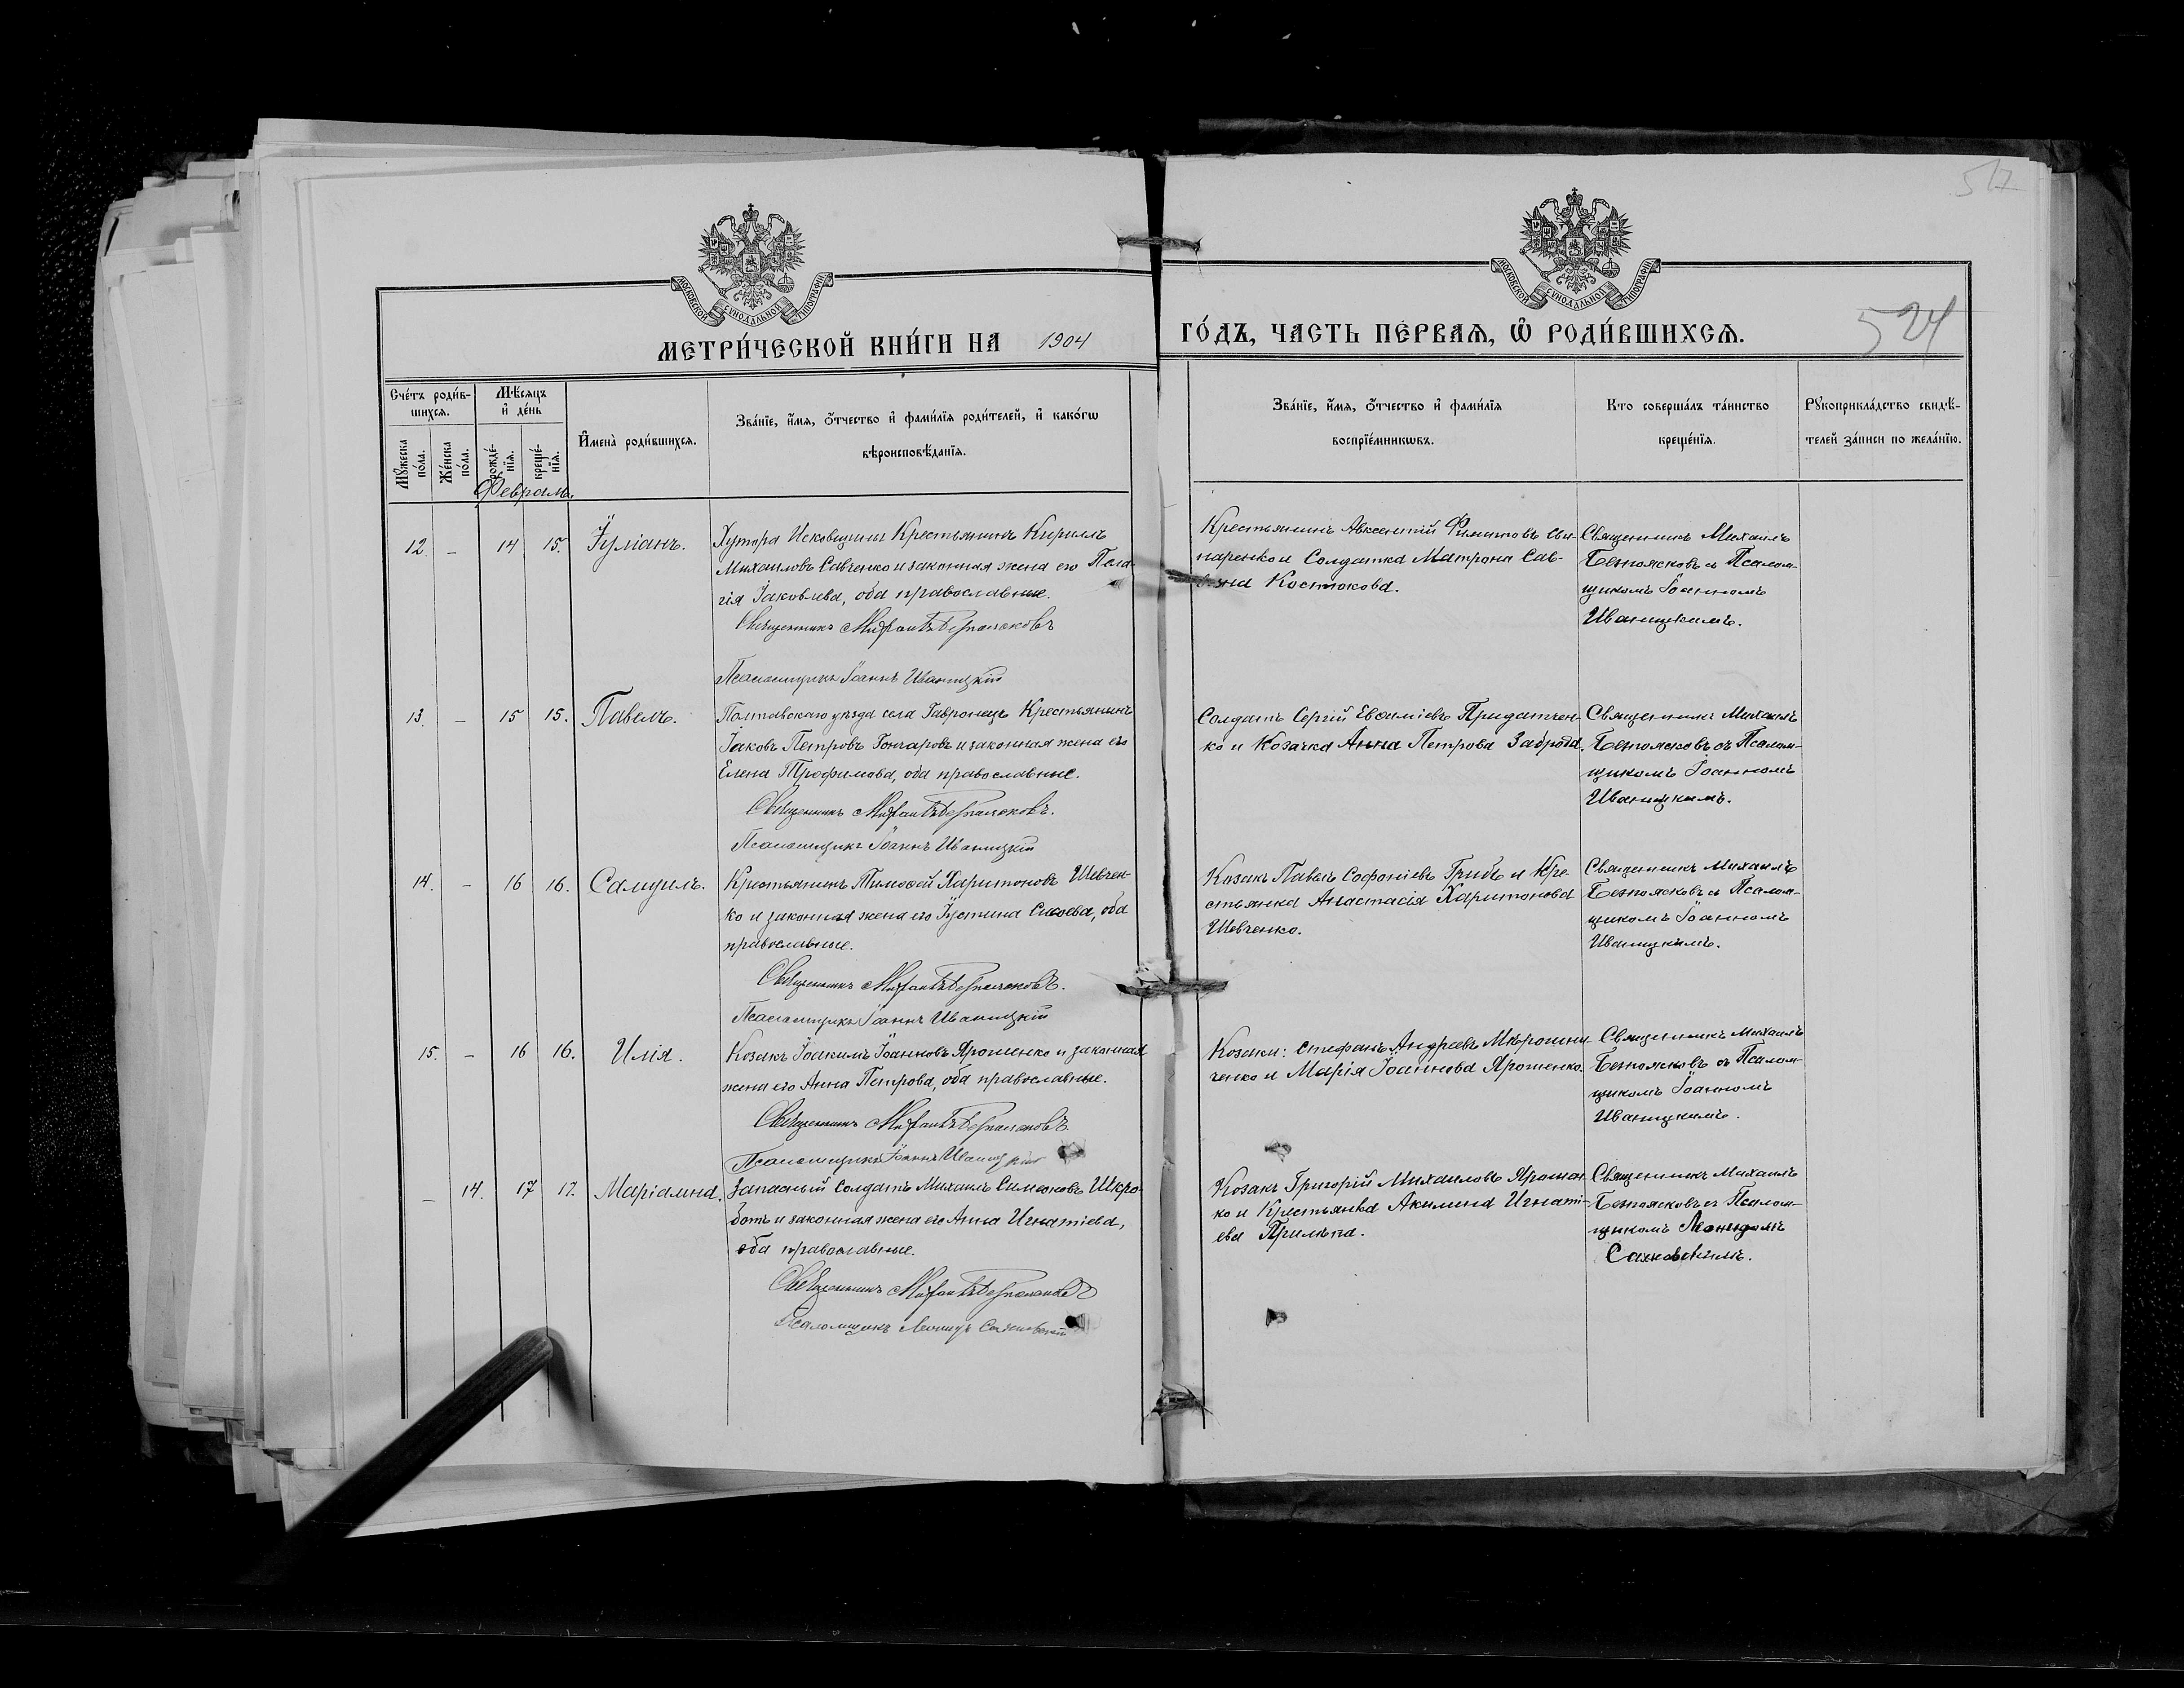 517
МОСКОВСКОЙ СѴНОДАЛЬНОЙ ТИПОГРАФІИ
МОСКОВСКОЙ СѴНОДАЛЬНОЙ ТИПОГРАФІИ
МЕТРИ́ЧЕСКОЙ КНИ́ГИ НА 1904 ГО́ДЪ, ЧАСТЬ ПЕ́РВАѦ, Ѡ҆ РОДИ́ВШИХСѦ.
524
Сче́тъ роди́в-
шихсѧ.
Мꙋ́жеска по́ла.
Же́нска по́ла.
Мѣ́сѧцъ
и҆ де́нь
рожде́-
нїѧ.
креще́-
нїѧ.
И҆мена̀ роди́вшихсѧ.
Зва́нїе, и҆́мѧ, ѻ҆́тчество и҆ фами́лїѧ роди́телей, и҆ како́гѡ
вѣроисповѣ́данїѧ.
Зва́нїе, и҆́мѧ, ѻ҆́тчество и҆ фами́лїѧ
воспрїе́мникѡвъ.
Кто соверша́лъ та́инство
креще́нїѧ.
Рꙋкоприкла́дство свидѣ́-
телей за́писи по жела́нїю.
Февраль.
12. – 14 15. Іуліанъ.
Хутора Исковщины Крестьянинъ Кириллъ
Михаиловъ Савченко и законная жена его Пела-
гія Іаковлева, оба православные.
Священникъ Михаилъ Безпоясковъ
Псаломщикъ Іоаннъ Иваницкій
Крестьянинъ Авксентій Филиповъ Сви-
наренко и Солдатка Матрона Сав-
вина Костюкова.
Священникъ Михаилъ
Безпоясковъ съ Псалом-
щикомъ Іоанномъ
Иваницкимъ.
13. – 15 15. Павелъ.
Полтавскаго уѣзда села Гавронецъ Крестьянинъ
Іаковъ Петровъ Гончаровъ и законная жена его
Елена Трофимова, оба православные.
Священникъ Михаилъ Безпоясковъ.
Псаломщикъ Іоаннъ Иваницкій
Солдатъ Сергій Евѳиміевъ Придатчен-
ко и Козачка Анна Петрова Заброда
Священникъ Михаилъ
Безпоясковъ съ Псалом-
щикомъ Іоанномъ
Иваницкимъ.
14. – 16 16. Самуилъ.
Крестьянинъ Тимоѳей Харитоновъ Шевчен-
ко и законная жена его Іустина Сисоева, оба
православные.
Священникъ Михаилъ Безпоясковъ.
Псаломщикъ Іоаннъ Иваницкій
Козакъ Павелъ Софоніевъ Грибъ и Кре-
стьянка Анастасія Харитонова
Шевченко.
Священникъ Михаилъ
Безпоясковъ съ Псалом-
щикомъ Іоанномъ
Иваницкимъ.
15. – 16 16. Илія.
Козакъ Іоакимъ Іоанновъ Ярошенко и законная
жена его Анна Петрова, оба православные.
Священникъ Михаилъ Безпоясковъ.
Псаломщикъ Іоаннъ Иваницкій
Козаки: Стефанъ Андреевъ
ченко и Марія Іоаннова Ярошенко.
Священникъ Михаилъ
Безпоясковъ съ Псалом-
щикомъ Іоанномъ
Иваницкимъ.
– 14. 17 17. Маріамна.
Запасный Солдатъ Михаилъ Симеоновъ Шкро-
ботъ и законная жена его Анна Игнатіева,
оба православные.
Священникъ Михаилъ Безпоясковъ
Псаломщикъ Леонидъ Сахновскій
Козакъ Григорій Михаиловъ Ярошен-
ко и Крестьянка Акилина Игнаті-
ева Прилѣпа.
Священникъ Михаилъ
Безпоясковъ съ Псалом-
щикомъ Леонидомъ
Сахновскимъ.